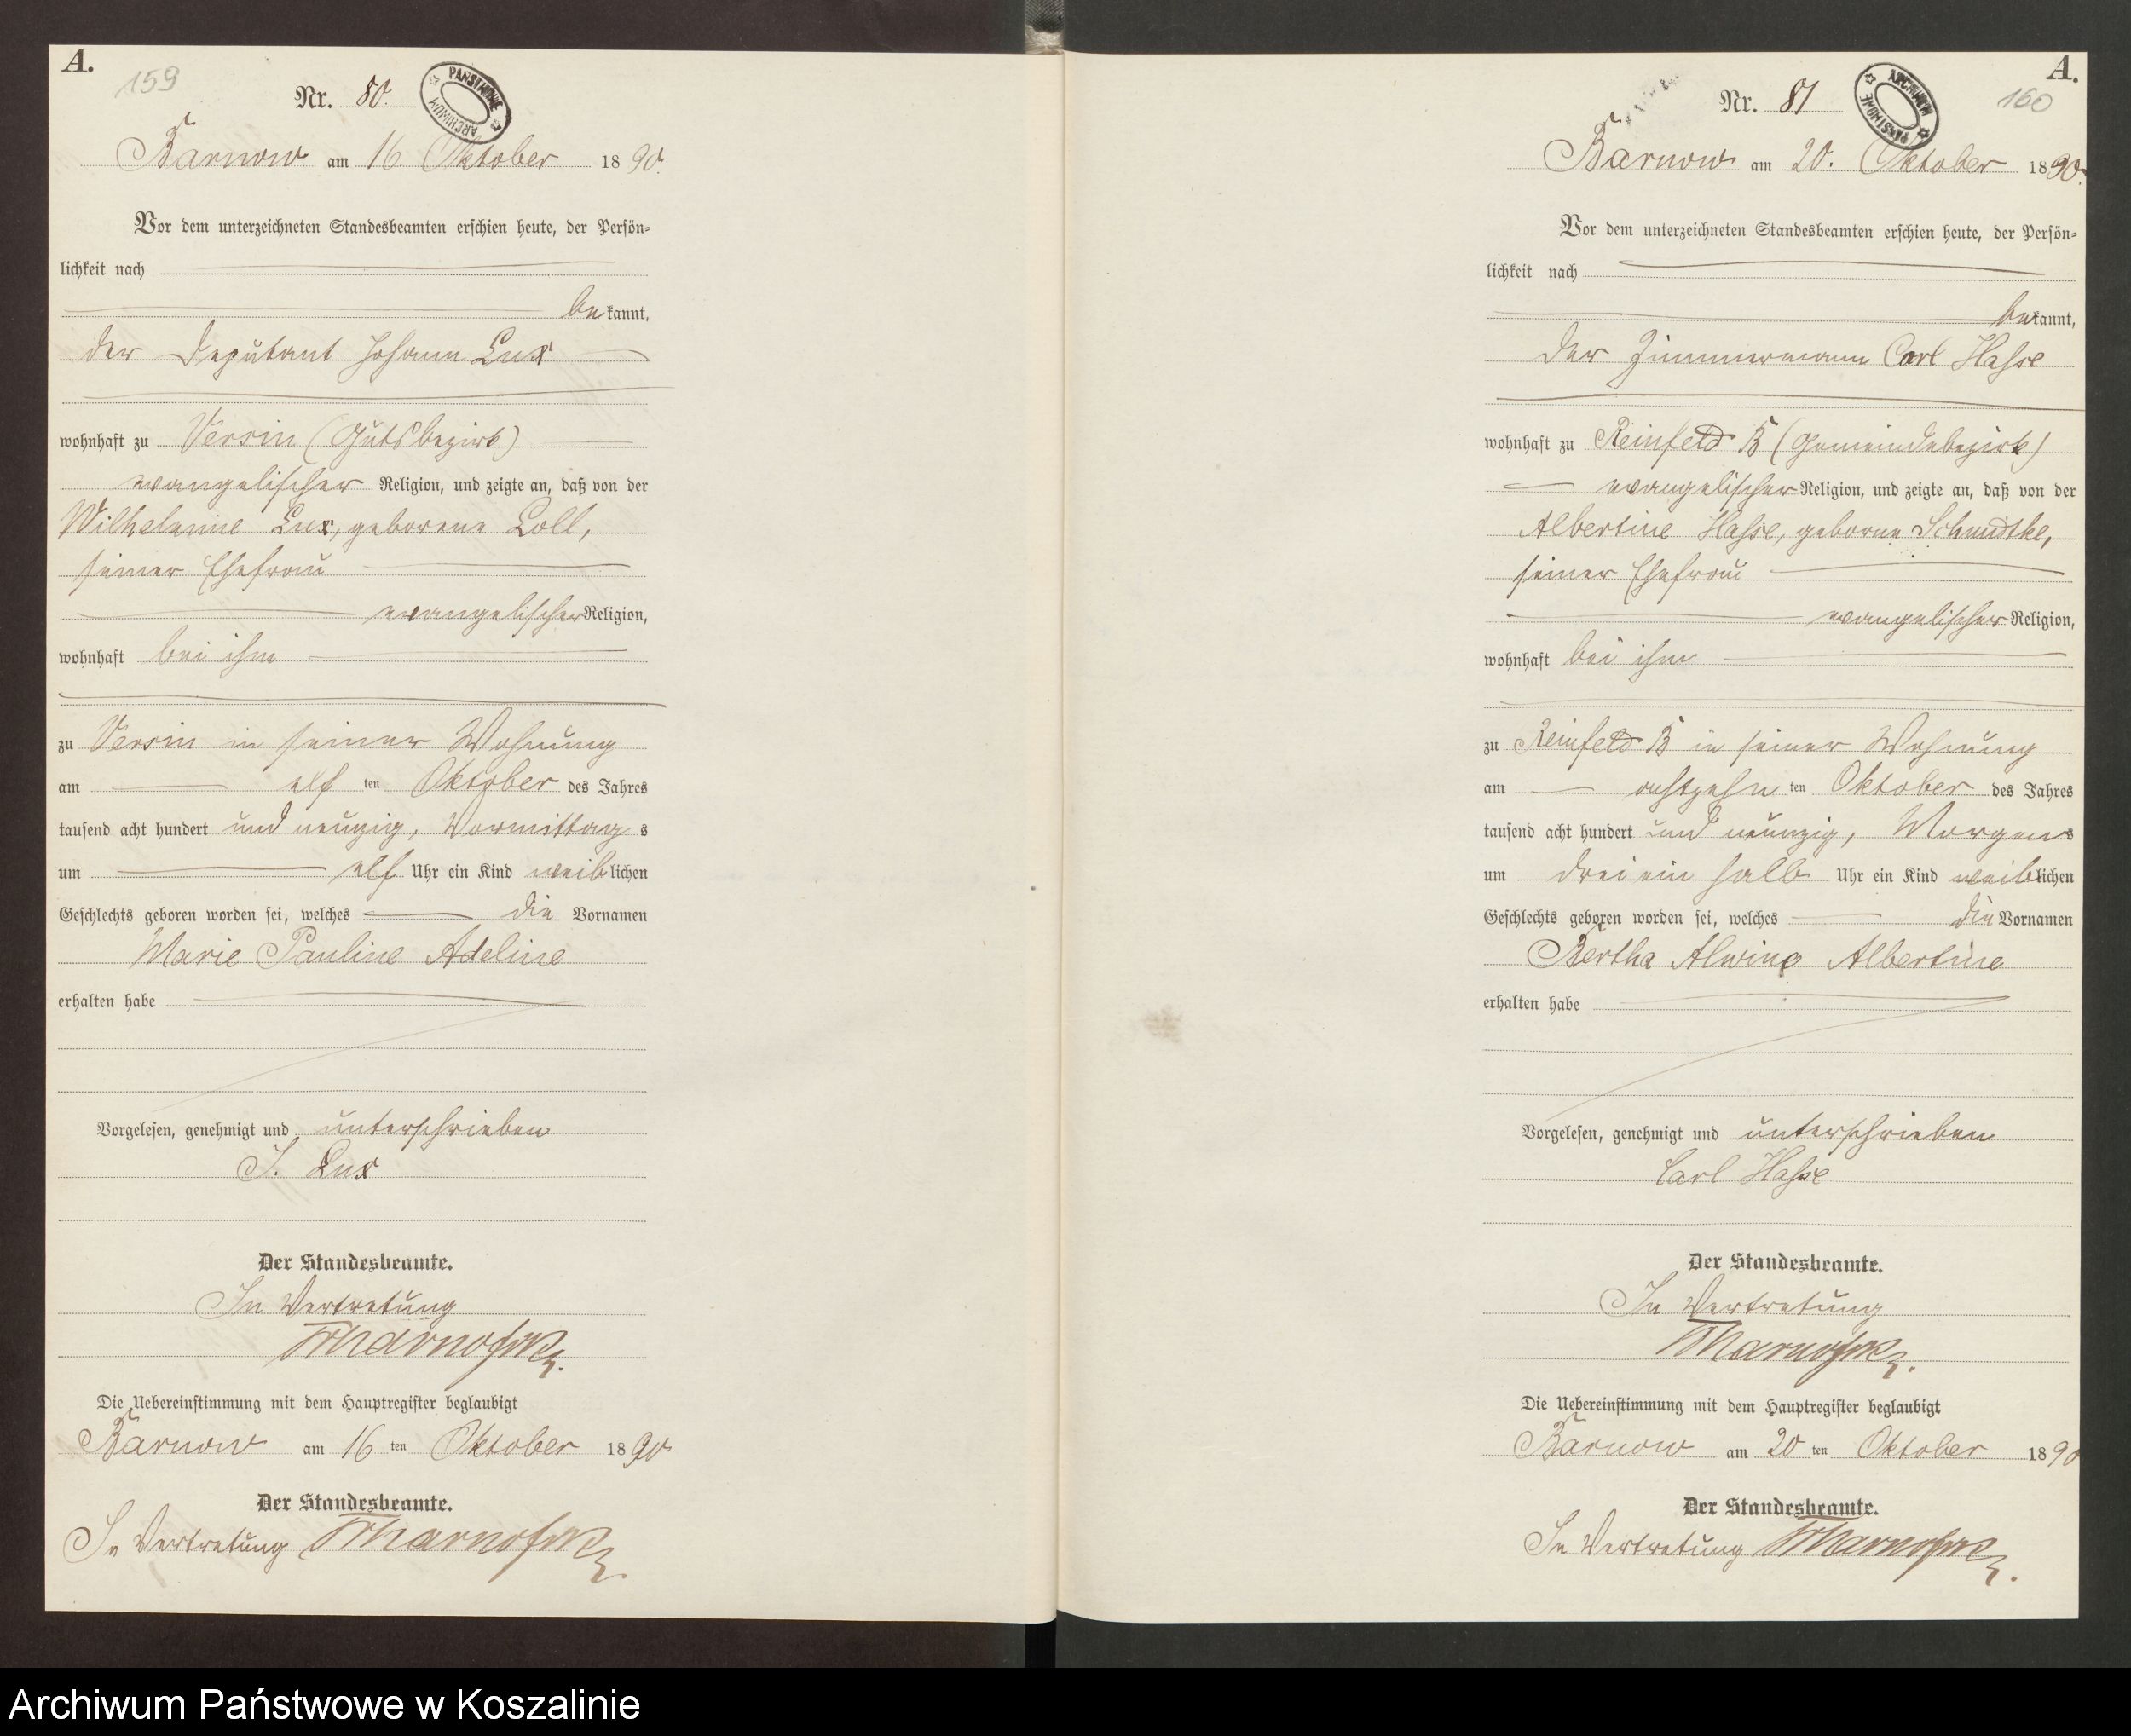 A.
159
Nr. 80.
PAŃSTWOWE ARCHIWUM
Barnow am 16 Oktober 1890.
Vor dem unterzeichneten Standesbeamten erschien heute, der Persön-
lichkeit nach
bekannt,
der Deputant Johann Lux
wohnhaft zu Versin (Gutsbezirk)
evangelischer Religion, und zeigte an, daß von der
Wilhelmine Lux, geborene Loll,
seiner Ehefrau
evangelischer Religion,
wohnhaft bei ihm
zu Versin in seiner Wohnung
am elf ten Oktober des Jahres
tausend acht hundert und neunzig, Vormittags
um elf Uhr ein Kind weiblichen
Geschlechts geboren worden sei, welches die Vornamen
Marie Pauline Adeline
erhalten habe
Vorgelesen, genehmigt und unterschrieben
J. Lux
Der Standesbeamte.
In Vertretung
Die Uebereinstimmung mit dem Hauptregister beglaubigt
Barnow am 16 ten Oktober 1890
Der Standesbeamte.
In Vertretung
A.
160
Nr. 81
ARCHIWUM PAŃSTWOWE
Barnow am 20. Oktober 1890.
Vor dem unterzeichneten Standesbeamten erschien heute, der Persön-
lichkeit nach
bekannt,
der Zimmermann Carl Hasse
wohnhaft zu Reinfeld B (Gemeindebezirk)
evangelischer Religion, und zeigte an, daß von der
Albertine Hasse, geborne Schmidtke,
seiner Ehefrau
evangelischer Religion,
wohnhaft bei ihm
zu Reinfeld B in seiner Wohnung
am achtzehn ten Oktober des Jahres
tausend acht hundert und neunzig, Morgens
um drei ein halb Uhr ein Kind weiblichen
Geschlechts geboren worden sei, welches die Vornamen
Bertha Alwine Albertine
erhalten habe
Vorgelesen, genehmigt und unterschrieben
Carl Hasse
Der Standesbeamte.
In Vertretung
Die Uebereinstimmung mit dem Hauptregister beglaubigt
Barnow am 20 ten Oktober 1890
Der Standesbeamte.
In Vertretung
Archiwum Państwowe w Koszalinie